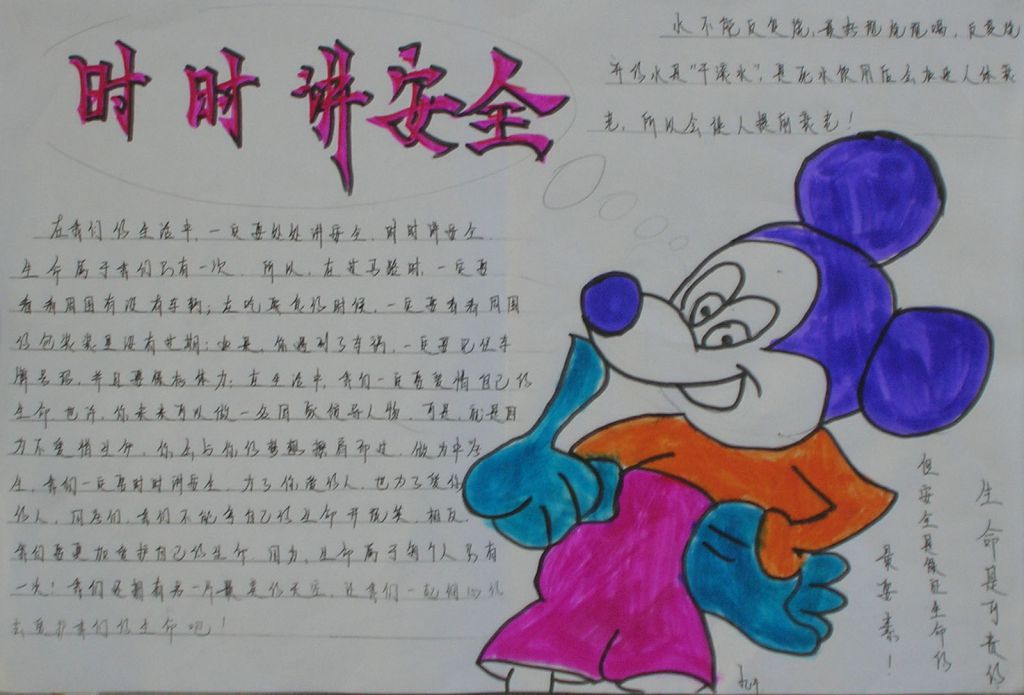 时时讲安全
水不能反复烧,最好现烧现喝,反复烧
开的水是"千滚水",是死水饮用后会加速人体衰
老,所以会使人提前衰老!
在我们的生活中,一定要处处讲安全,时时讲安全
生命属于我们只有一次,所以,在过马路时,一定要
看看周围有没有车辆;在吃零食的时候,一定要看看周围
的包装袋里没有过期;如果,你遇到了车祸,一定要记住车
牌号码,并且要保持体力;在生活中,我们一定要爱惜自己的
生命也许,你未来可以做一名国家领导人物,可是,就是因
为不爱惜生命,你会与你的梦想擦肩而过,做为中学
生,我们一定要时时讲安全,为了你爱的人,也为了爱你
的人,同学们,我们不能拿自己的生命开玩笑,相反,
我们要更加爱护自己的生命,因为,生命属于每个人只有
一次!我们还拥有另一片最美的天空,让我们一起
去更护我们的生命吧!
生命是可贵的
但安全是保证生命的
最要素!